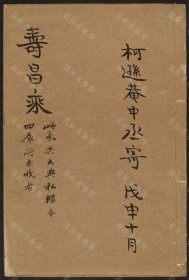 柯遜菴中丞寄 戊申十月
壽昌乘
此系眾大典私輯本
四庫所未收者